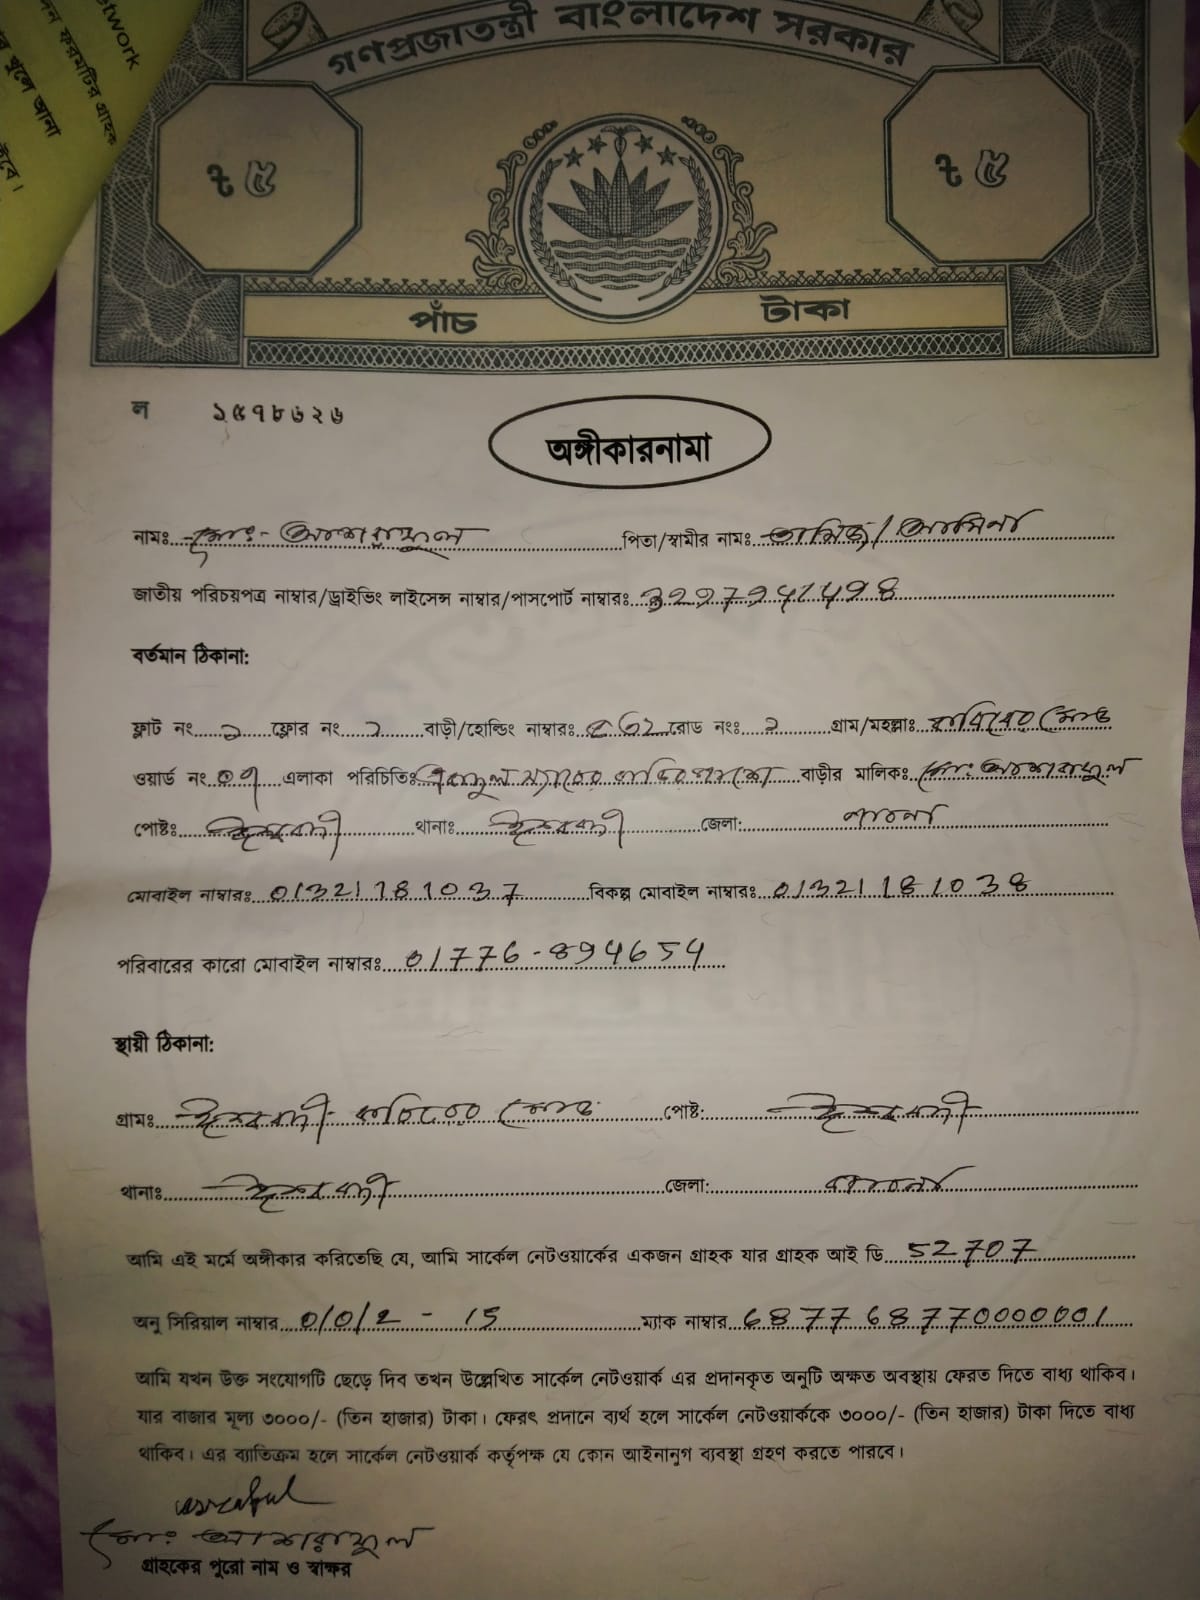 network
দন ফরমটির গ্রাহক
খুলে আনা
গণপ্রজাতন্ত্রী বাংলাদেশ সরকার
৳ ৫ ৳ ৫
পাঁচ টাকা
ল ১৫৭৮৬২৬
অঙ্গীকারনামা
নামঃ মোঃ- আশরাফুল পিতা/স্বামীর নামঃ আমিনা
জাতীয় পরিচয়পত্র নাম্বার/ড্রাইভিং লাইসেন্স নাম্বার/পাসপোর্ট নাম্বারঃ
বর্তমান ঠিকানা:
ফ্লাট নং ফ্লোর নং বাড়ী/হোল্ডিং নাম্বারঃ রোড নংঃ গ্রাম/মহল্লাঃ মোড়
ওয়ার্ড নং ০৭ এলাকা পরিচিতিঃ বাড়ীর মালিকঃ মোঃ আশরাফুল
পোষ্টঃ ঈশ্বরদী থানাঃ ঈশ্বরদী জেলা: পাবনা
মোবাইল নাম্বারঃ 01321181037 বিকল্প মোবাইল নাম্বারঃ 01321181038
পরিবারের কারো মোবাইল নাম্বারঃ 01776-894654
স্থায়ী ঠিকানা:
গ্রামঃ ঈশ্বরদী মোড় পোষ্ট: ঈশ্বরদী
থানাঃ ঈশ্বরদী জেলা: পাবনা
আমি এই মর্মে অঙ্গীকার করিতেছি যে, আমি সার্কেল নেটওয়ার্কের একজন গ্রাহক যার গ্রাহক আই ডি 52707
অনু সিরিয়াল নাম্বার 0/0/2 - 15 ম্যাক নাম্বার 6877687770000001
আমি যখন উক্ত সংযোগটি ছেড়ে দিব তখন উল্লেখিত সার্কেল নেটওয়ার্ক এর প্রদানকৃত অনুটি অক্ষত অবস্থায় ফেরত দিতে বাধ্য থাকিব।
যার বাজার মূল্য ৩০০০/- (তিন হাজার) টাকা। ফেরৎ প্রদানে ব্যর্থ হলে সার্কেল নেটওয়ার্ককে ৩০০০/- (তিন হাজার) টাকা দিতে বাধ্য
থাকিব। এর ব্যাতিক্রম হলে সার্কেল নেটওয়ার্ক কর্তৃপক্ষ যে কোন আইনানুগ ব্যবস্থা গ্রহণ করতে পারবে।
মোঃ আশরাফুল
গ্রাহকের পুরো নাম ও স্বাক্ষর